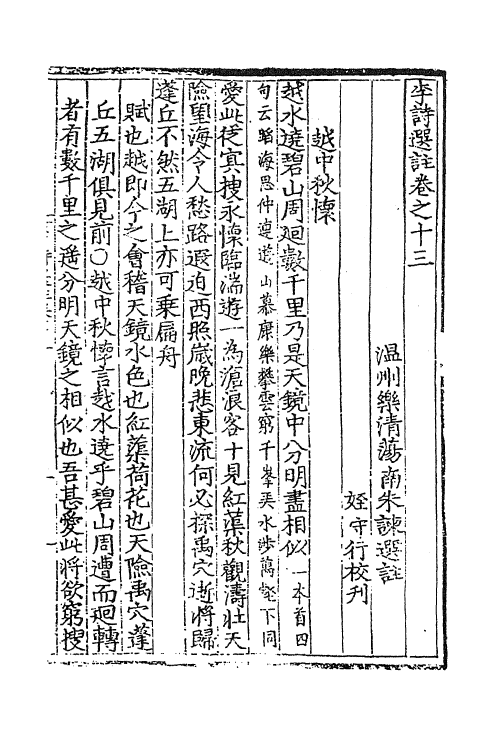 李詩選註卷之十三
溫州樂清蕩南朱諫選註
姪守行校刋
越中秋懷
越水遶碧山周廻數千里乃是天鏡中分明畫相似一本首四
句云蹈海思仲連遊山慕康樂攀雲窮千峯弄水涉萬壑下同
愛此從冥搜永懷臨湍遊一為滄浪客十見紅蕖秋觀濤壯天
險望海令人愁路遐迫西照歲晚悲東流何必探禹穴逝將歸
蓬丘不然五湖上亦可乗扁舟
賦也越即今之會稽天鏡水色也紅蕖荷花也天險禹穴蓬
丘五湖俱見前〇越中秋懷言越水遶乎碧山周遭而廻轉
者有數千里之遥分明天鏡之相似也吾甚愛此將欲窮搜